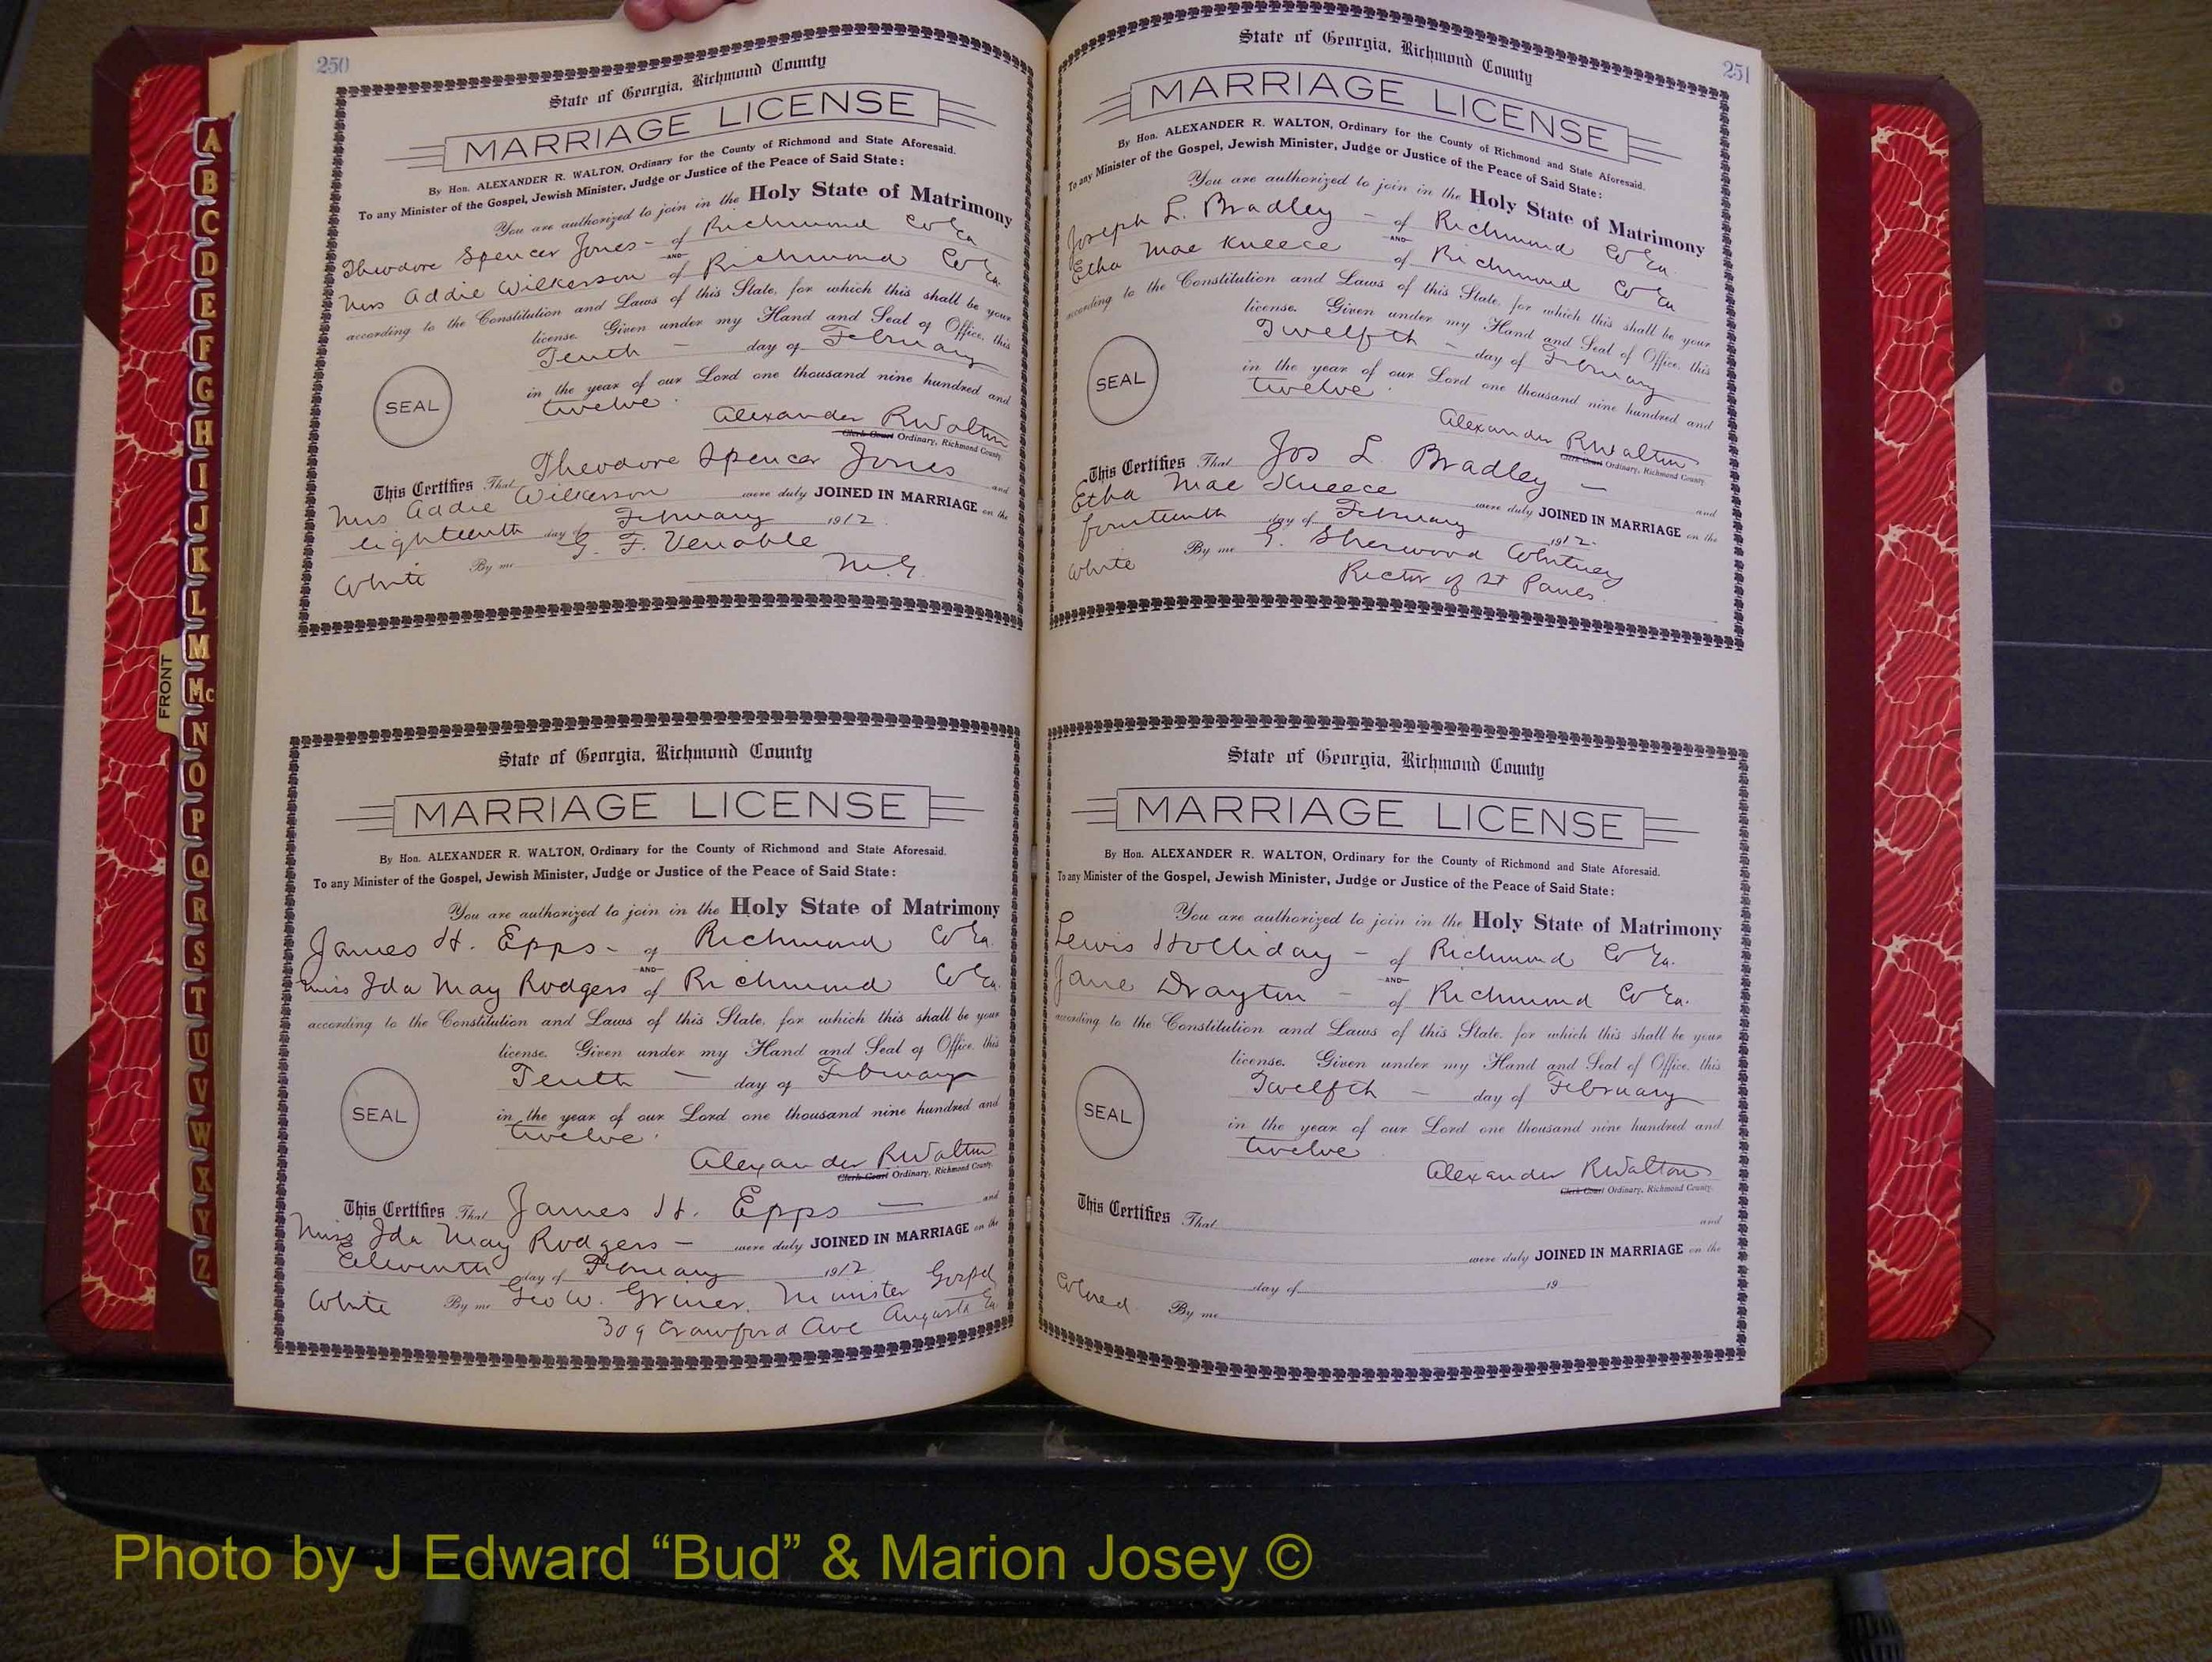 250
State of Georgia, Richmond County
MARRIAGE LICENSE
By Hon. ALEXANDER R. WALTON, Ordinary for the County of Richmond and State Aforesaid.
To any Minister of the Gospel, Jewish Minister, Judge or Justice of the Peace of Said State:
You are authorized to join in the Holy State of Matrimony
Theodore Spencer Jones - of Richmond Co Ga
AND
Miss Addie Wilkerson of Richmond Co Ga.
according to the Constitution and Laws of this State, for which this shall be your
license. Given under my Hand and Seal of Office, this
Tenth - day of February
in the year of our Lord one thousand nine hundred and
twelve.
SEAL
Alexander R Walton
Clerk Court Ordinary, Richmond County
This Certifies That Theodore Spencer Jones and
Miss Addie Wilkerson were duly JOINED IN MARRIAGE on the
eighteenth day of February 1912.
White By me G. F. Venable
M.G.
State of Georgia, Richmond County
MARRIAGE LICENSE
By Hon. ALEXANDER R. WALTON, Ordinary for the County of Richmond and State Aforesaid.
To any Minister of the Gospel, Jewish Minister, Judge or Justice of the Peace of Said State:
You are authorized to join in the Holy State of Matrimony
James H. Epps - of Richmond Co Ga.
AND
Miss Ida May Rodgers of Richmond Co Ga.
according to the Constitution and Laws of this State, for which this shall be your
license. Given under my Hand and Seal of Office, this
Tenth - day of February
in the year of our Lord one thousand nine hundred and
twelve.
SEAL
Alexander R Walton
Clerk Court Ordinary, Richmond County.
This Certifies That James H. Epps - and
Miss Ida May Rodgers - were duly JOINED IN MARRIAGE on the
Eleventh day of February 1912
White By me Geo W. Griner, Minister Gospel
309 Crawford Ave Augusta Ga
251
State of Georgia, Richmond County
MARRIAGE LICENSE
By Hon. ALEXANDER R. WALTON, Ordinary for the County of Richmond and State Aforesaid.
To any Minister of the Gospel, Jewish Minister, Judge or Justice of the Peace of Said State:
You are authorized to join in the Holy State of Matrimony
Joseph L. Bradley - of Richmond Co Ga
AND
Etha Mae Kneece of Richmond Co Ga
according to the Constitution and Laws of this State, for which this shall be your
license. Given under my Hand and Seal of Office, this
Twelfth - day of February
in the year of our Lord one thousand nine hundred and
twelve.
SEAL
Alexander R Walton
Clerk Court Ordinary, Richmond County
This Certifies That Jos L. Bradley - and
Etha Mae Kneece were duly JOINED IN MARRIAGE on the
fourteenth day of February 1912
White By me G. Sherwood Whitney
Rector of St Paul's.
State of Georgia, Richmond County
MARRIAGE LICENSE
By Hon. ALEXANDER R. WALTON, Ordinary for the County of Richmond and State Aforesaid.
To any Minister of the Gospel, Jewish Minister, Judge or Justice of the Peace of Said State:
You are authorized to join in the Holy State of Matrimony
Lewis Holliday - of Richmond Co Ga.
AND
Jane Drayton - of Richmond Co Ga.
according to the Constitution and Laws of this State, for which this shall be your
license. Given under my Hand and Seal of Office, this
Twelfth - day of February
in the year of our Lord one thousand nine hundred and
twelve
SEAL
Alexander R Walton
Clerk Court Ordinary, Richmond County.
This Certifies That and
were duly JOINED IN MARRIAGE on the
day of 19
Colored. By me
A
B
C
D
E
F
G
H
I
J
K
L
M
Mc
N
O
P
Q
R
S
T
U
V
W
X
Y
Z
FRONT
Photo by J Edward “Bud” & Marion Josey ©